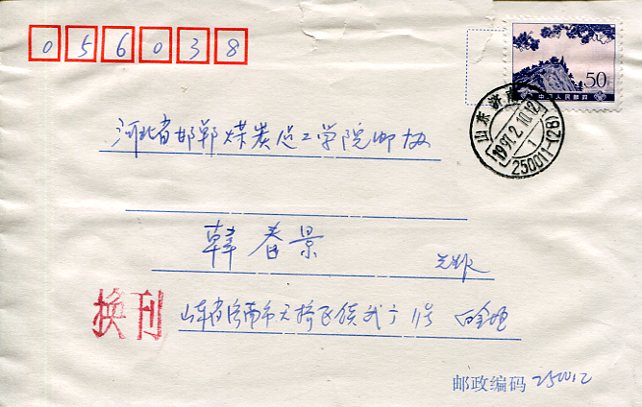 056038
50
中国人民邮政
山东济南
1997.2.10.12
1
250011-(26)
河北省邯郸煤炭 工学院邮协
韩春景
换刊
山东省济南市天桥区 11号
邮政编码 250012